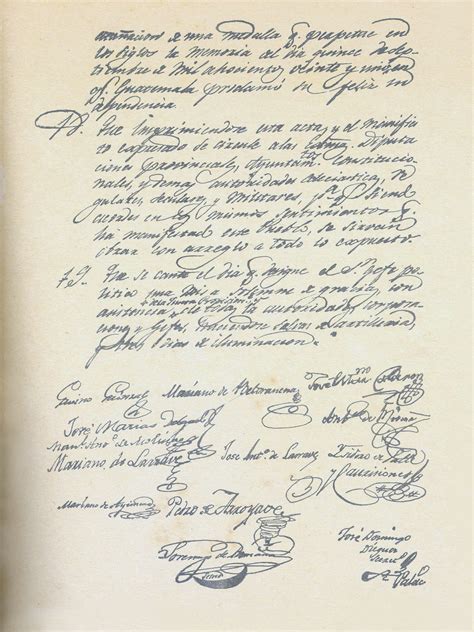 acuñacion de una medalla q. perpetue en
los siglos la memoria del dia quince de Sep-
tiembre de Mil ochocientos veinte y uno en
q. Guatemala proclamó su feliz in
dependencia.
18. Que imprimiendose esta acta, y el manifies
to expresado se circule a las Diputa
ciones provinciales, Ayuntam.tos Constitucio-
nales, y demas autoridades eclesiasticas, re-
gulares, Seculares, y Militares, p.a q. siend
acordes en los mismos sentimientos q.
ha manifestado este Pueblo, se sirvan
obrar con arreglo a todo lo expuesto.
Que se cante el dia q. designe el S.or Gefe po-
litico una Misa Solemne de gracias, con
asistencia de la Junta Provisional
de todas las autoridades, corpora
ciones y Gefes, haciendose salvas de Artilleria,
y tres dias de iluminacion.
Gavino Gainza
Mariano de Beltranena
José Matias Delgado
Man.l Ant.o de Molina
Mariano de Larrave
José Ant.o de Larrave
Mariano de Aycinena
Pedro de Arroyave
Lorenzo de Romaña
José Domingo
Dieguez